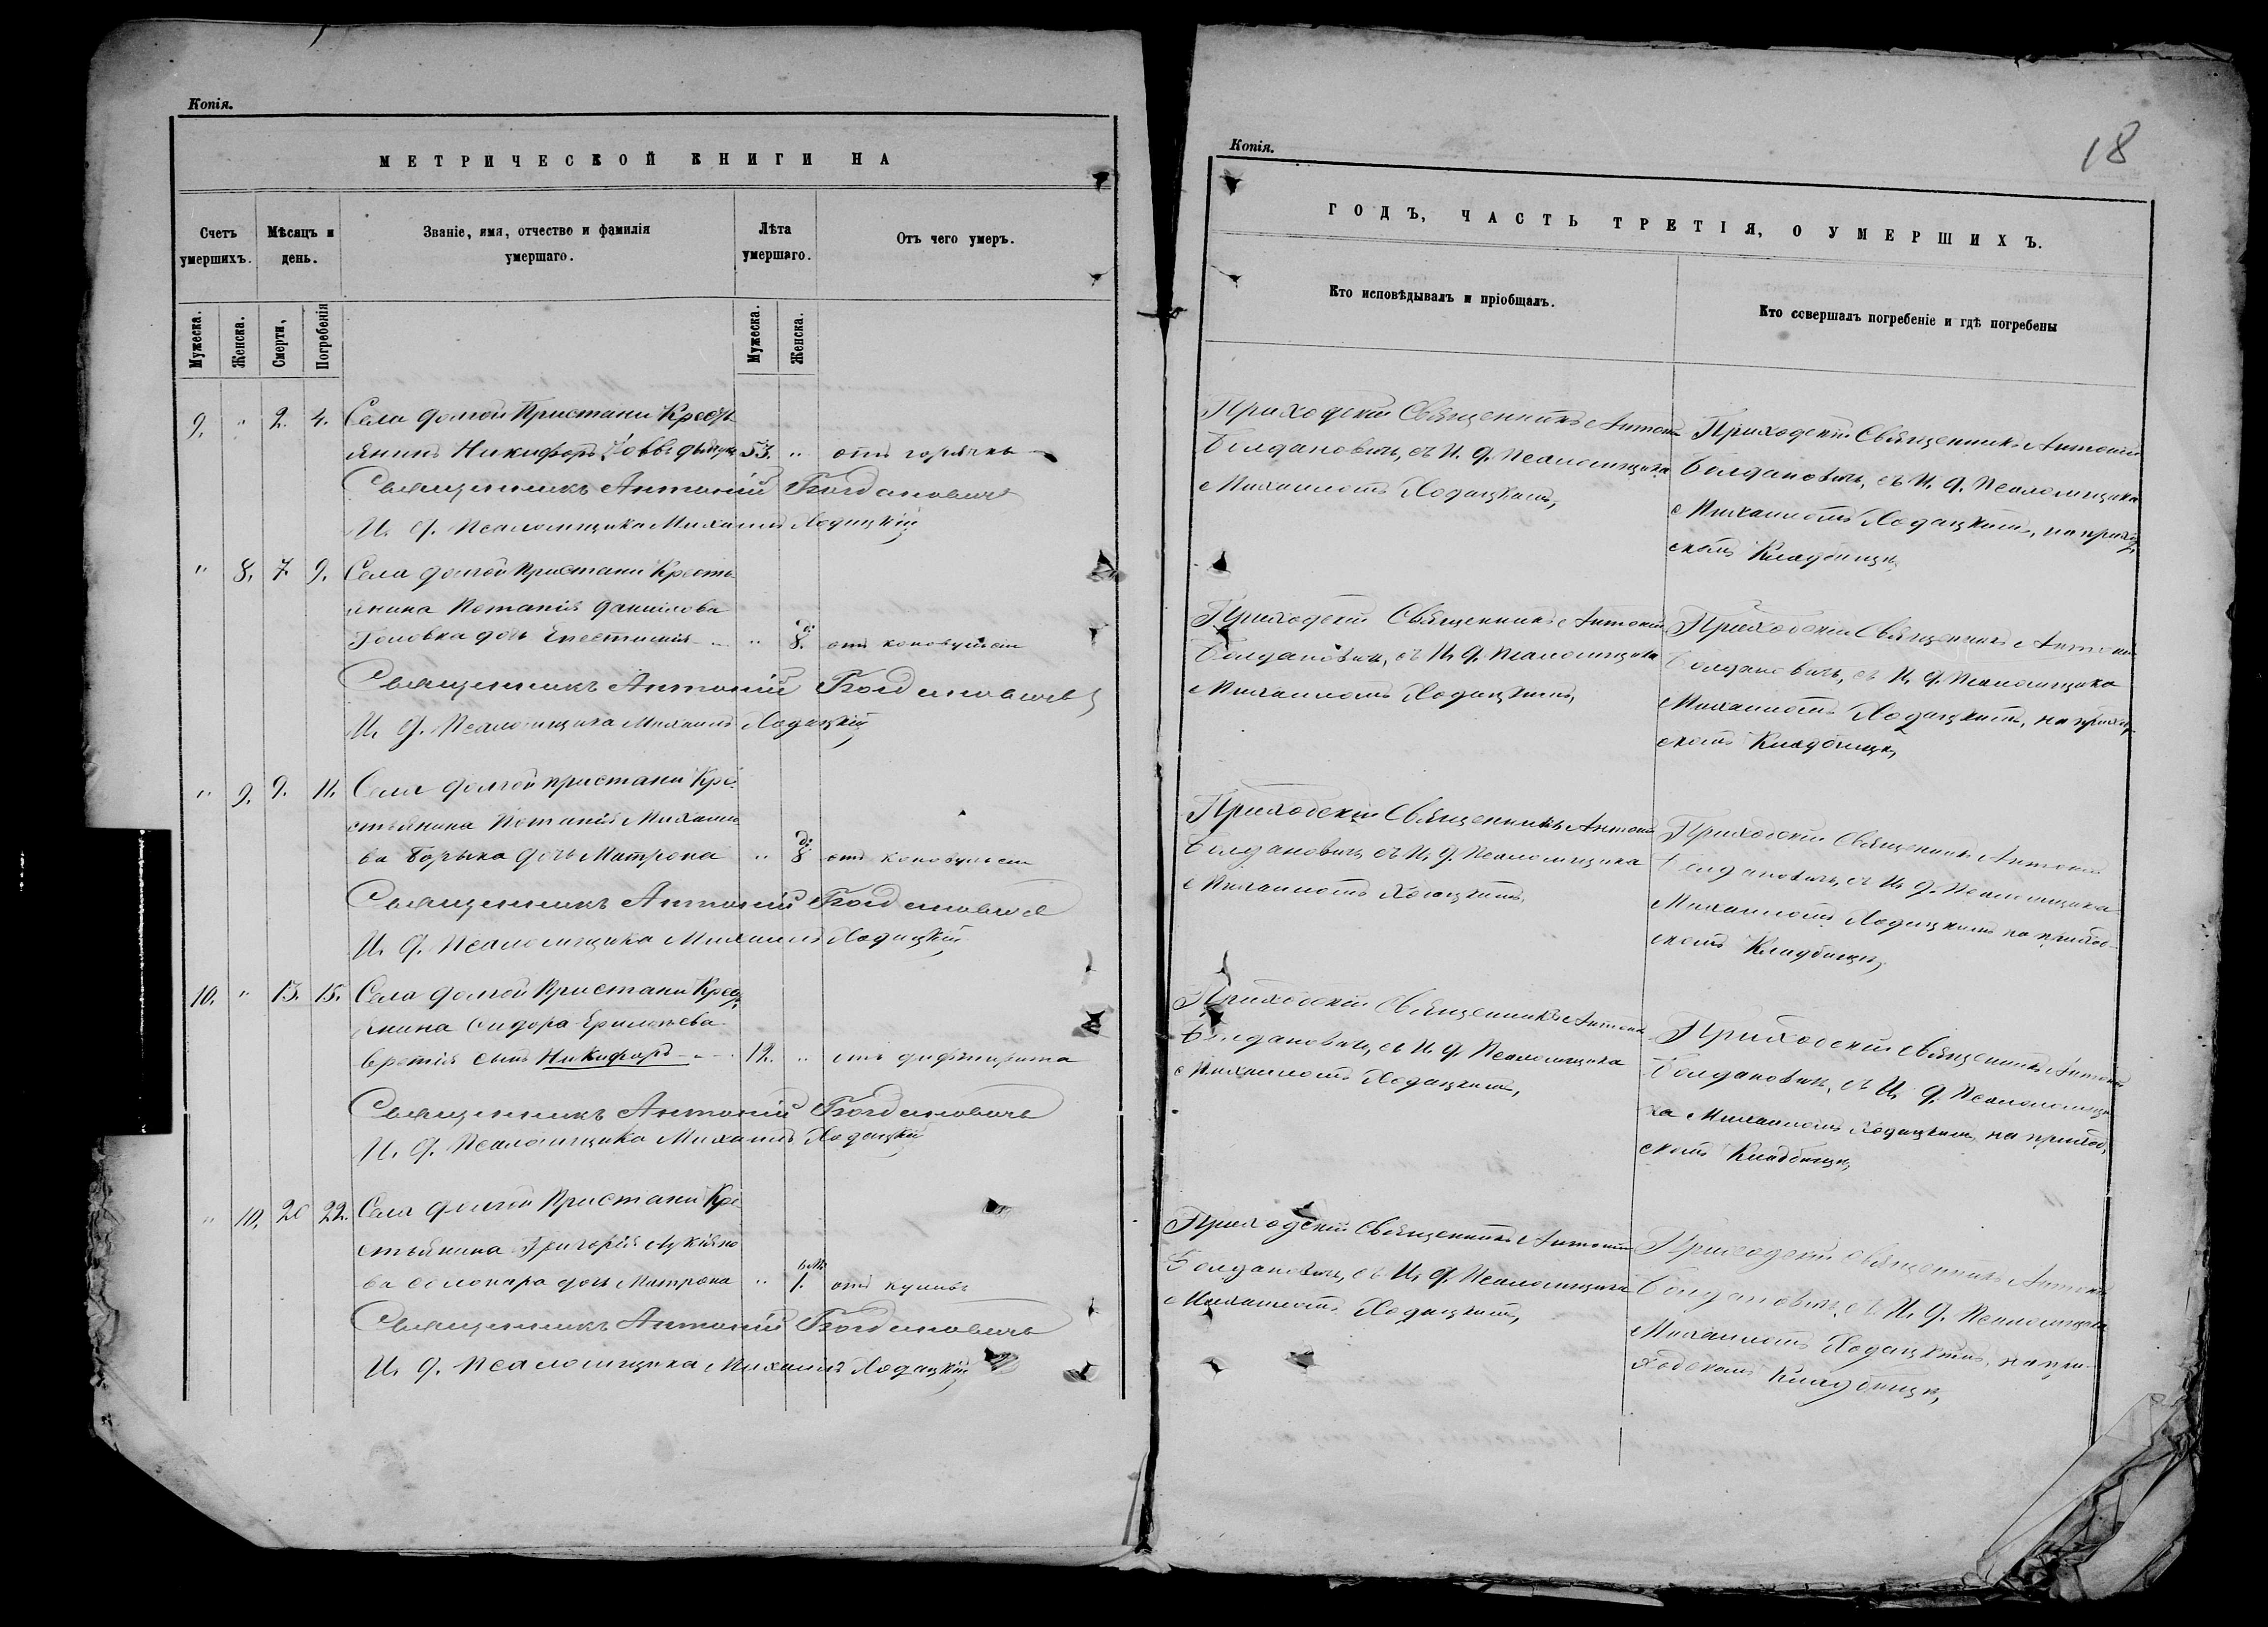 Копія.
МЕТРИЧЕСКОЙ КНИГИ НА
Счетъ умершихъ.
Мѣсяцъ и день.
Званіе, имя, отчество и фамилія умершаго.
Лѣта умершаго.
Отъ чего умеръ.
Мужеска.
Женска.
Смерти,
Погребенія
Мужеска.
Женска.
9. " 2. 4. Села Долгой Пристани Крестъ-
янинъ Никифоръ 53. " отъ горячки
Священникъ Антоній Богдановичъ
И. д. Псаломщика Михаилъ Ходацкій
" 8. 7. 9. Села Долгой Пристани Кресть-
янина Потапія Данилова
Головка дочь Епестимія " 8. д. отъ коновульсіи
Священникъ Антоній Богдановичъ
И. д. Псаломщика Михаилъ Ходацкій
" 9. 9. 11. Села Долгой пристани Кре-
стьянина Потапія Михайло-
ва дочь Матрона " 8 д. отъ коновульсіи
Священникъ Антоній Богдановичъ
И. д. Псаломщика Михаилъ Ходацкій
10. " 13. 15. Села Долгой Пристани Крест-
янина Сидора
сынъ Никифоръ 12. " отъ дифтирита
Священникъ Антоній Богдановичъ
И. д. Псаломщика Михаилъ Ходацкій
" 10. 20 22. Села Долгой Пристани Кре-
стьянина Григорія Лукіяно-
ва дочь Матрона " 1. отъ
Священникъ Антоній Богдановичъ
И. д. Псаломщика Михаилъ Ходацкій
Копія.
18
ГОДЪ, ЧАСТЬ ТРЕТІЯ, О УМЕРШИХЪ.
Кто исповѣдывалъ и пріобщалъ.
Кто совершалъ погребеніе и гдѣ погребены
Приходскій Священникъ Антоній
Богдановичъ, съ И. д. Псаломщика
Михаиломъ Ходацкимъ,
Приходскій Священникъ Антоній
Богдановичъ, съ И. д. Псаломщика
Михаиломъ Ходацкимъ, на приход-
скомъ Кладбищѣ,
Приходскій Священникъ Антоній
Богдановичъ, съ И. д. Псаломщика
Михаиломъ Ходацкимъ,
Приходскій Священникъ Антоній
Богдановичъ, съ И. д. Псаломщика
Михаиломъ Ходацкимъ, на приход-
скомъ Кладбищѣ,
Приходскій Священникъ Антоній
Богдановичъ, съ И. д. Псаломщика
Михаиломъ Ходацкимъ,
Приходскій Священникъ Антоній
Богдановичъ, съ И. д. Псаломщика
Михаиломъ Ходацкимъ на приход-
скомъ Кладбищѣ,
Приходскій Священникъ Антоній
Богдановичъ, съ И. д. Псаломщика
Михаиломъ Ходацкимъ,
Приходскій Священникъ Антоній
Богдановичъ, съ И. д. Псаломщи-
ка Михаиломъ Ходацкимъ, на приход-
скомъ Кладбищѣ,
Приходскій Священникъ Антоній
Богдановичъ, съ И. д. Псаломщика
Михаиломъ Ходацкимъ,
Приходскій Священникъ Антоній
Богдановичъ, съ И. д. Псаломщика
Михаиломъ Ходацкимъ, на при-
ходскомъ Кладбищѣ,